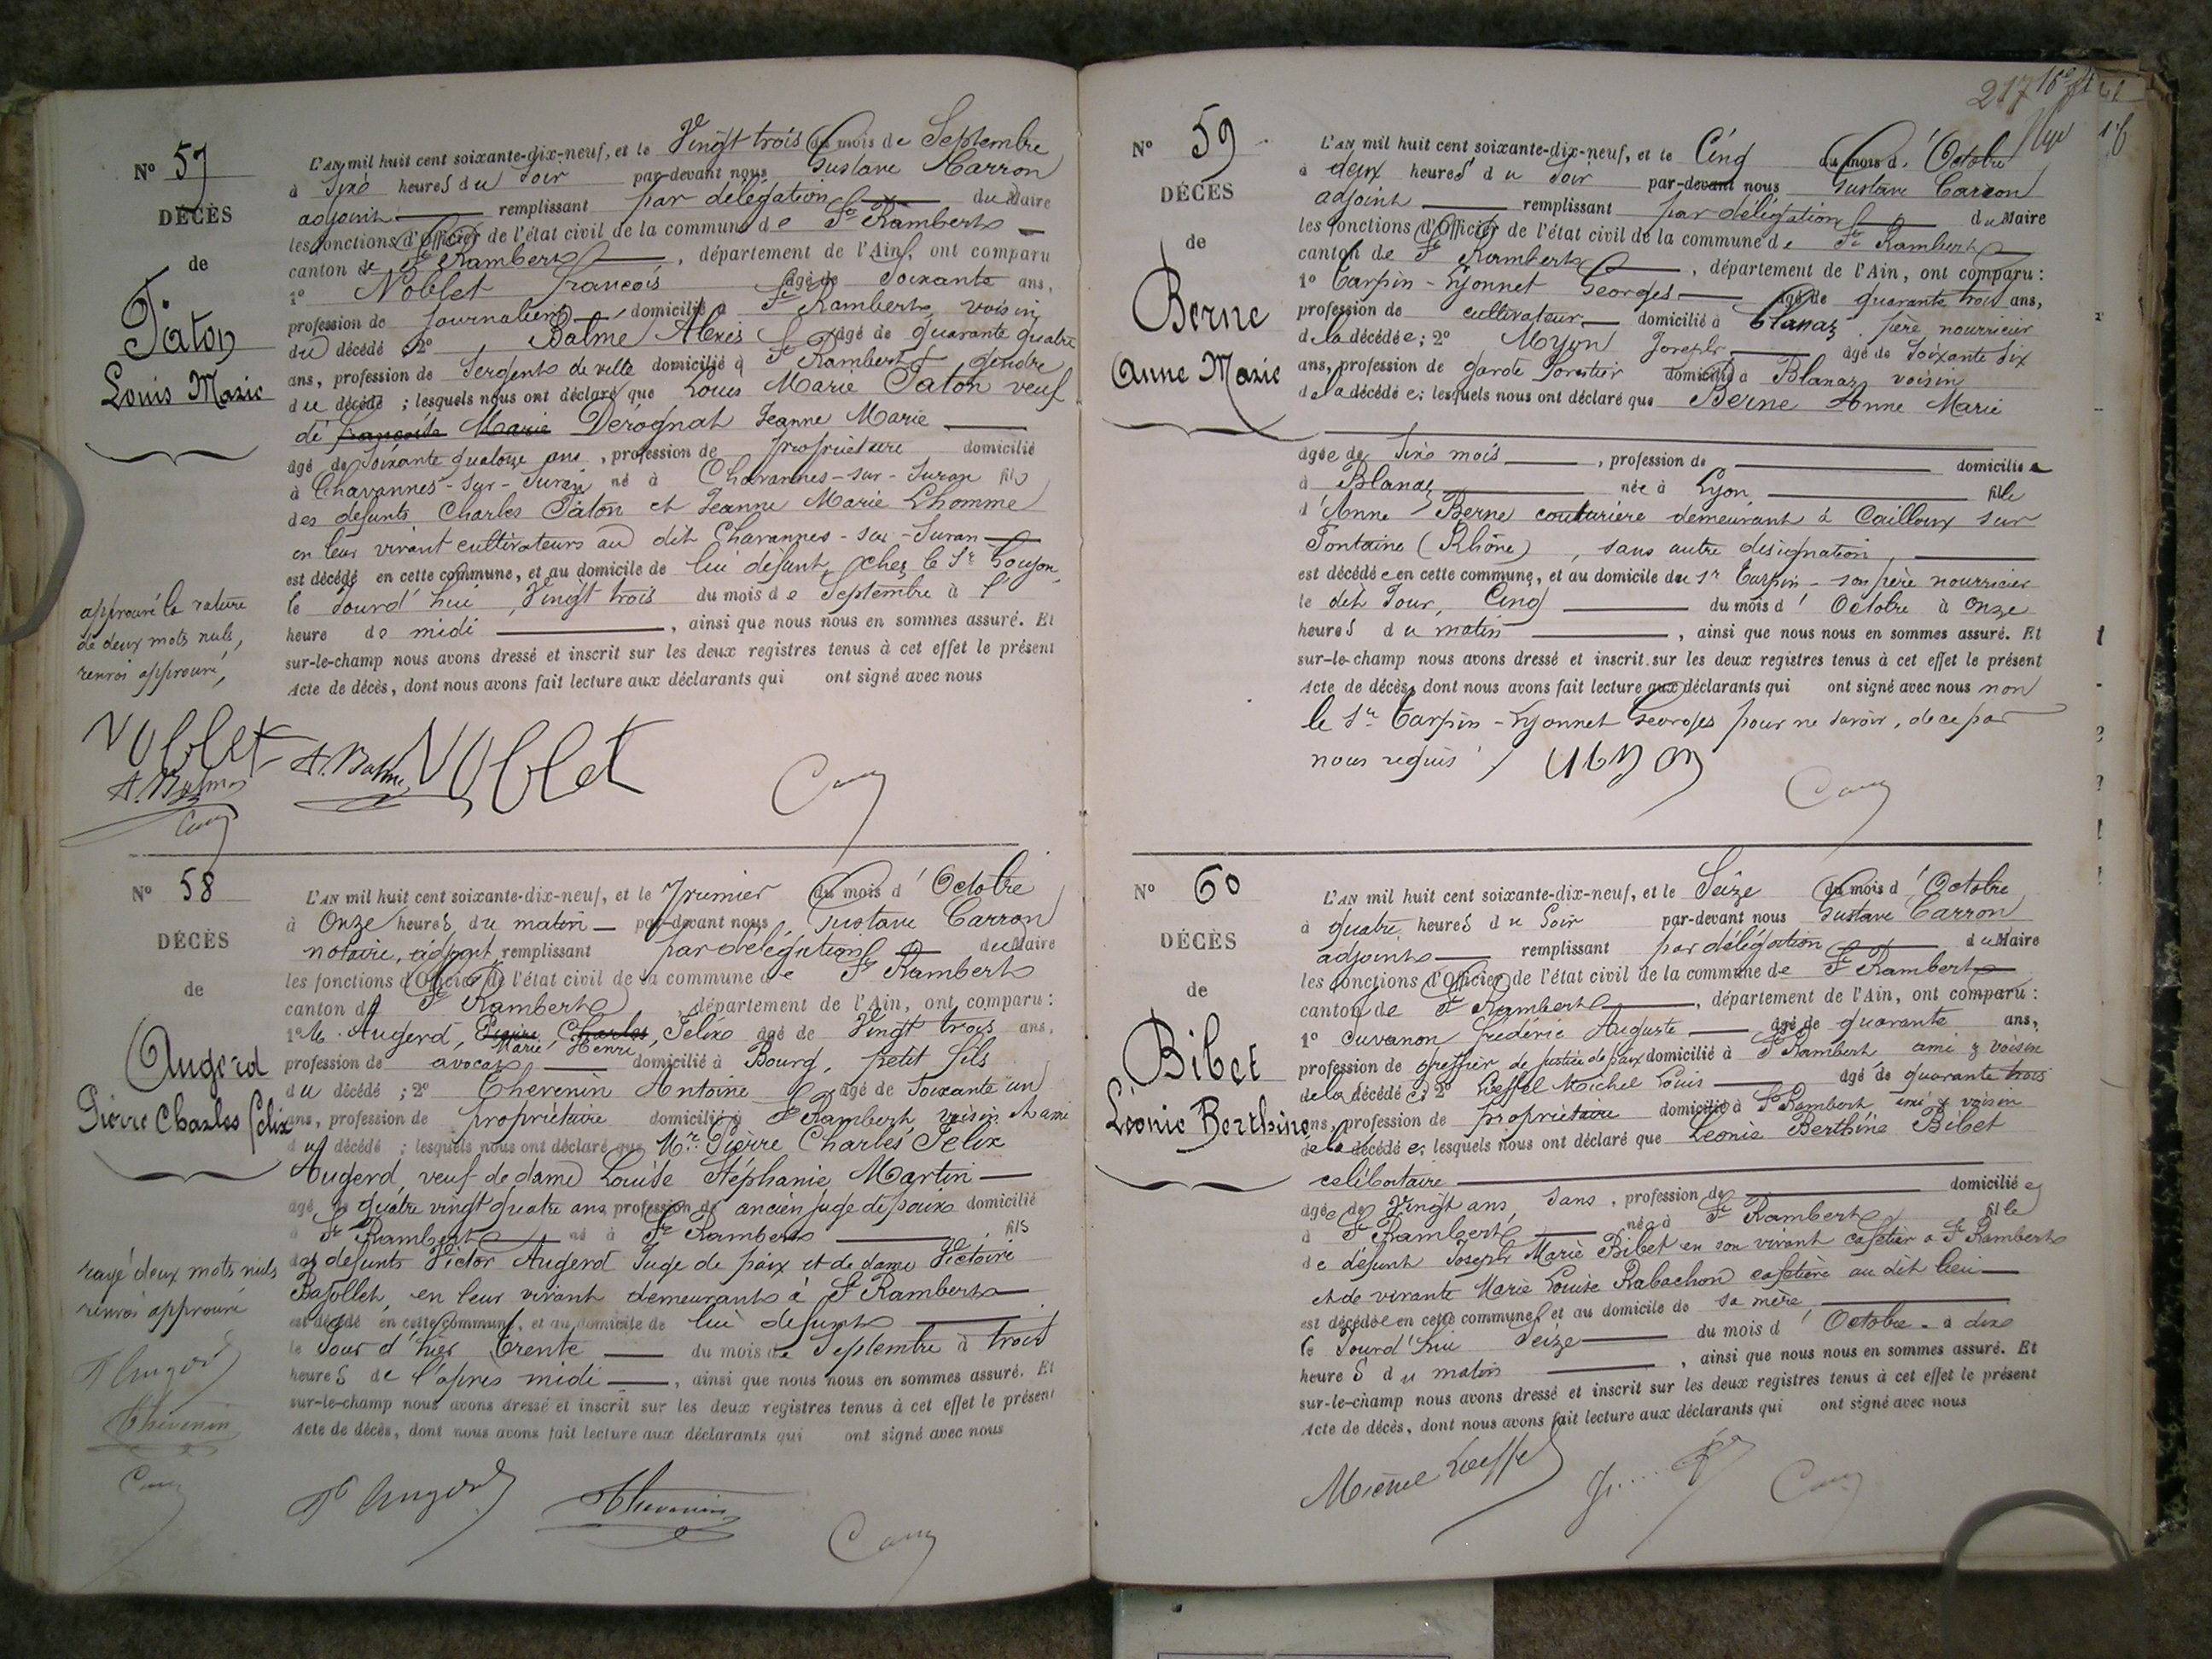 N° 57
DÉCÈS
de
Paton
Louis Marie
L'AN mil huit cent soixante-dix-neuf, et le Vingt trois du mois de Septembre
à Sixe heures du Soir par-devant nous Gustave Carron
adjoint remplissant par délégation du Maire
les fonctions d'Officier de l'état civil de la commune de St Rambert
canton de St Rambert, département de l'Ain, ont comparu
1° Noblet François âgé de Soixante ans,
profession de Journalier domicilié à St Rambert, voisin
du décédé, 2° Balme Alexis âgé de quarante quatre
ans, profession de Sergent de ville domicilié à St Rambert gendre
du décédé ; lesquels nous ont déclaré que Louis Marie Paton veuf
de françoise Marie Dérognat Jeanne Marie
âgé de Soixante quatorze ans, profession de propriétaire domicilié
à Chavannes-sur-Suran né à Chavannes-sur-Suran fils
des défunts Charles Paton et Jeanne Marie Lhomme
en leur vivant cultivateurs au dit Chavannes-sur-Suran
est décédé en cette commune, et au domicile de lui défunt, chez le Sr Goujon,
le Jourd'hui, Vingt trois du mois de Septembre à l'
heure de midi, ainsi que nous nous en sommes assuré. Et
sur-le-champ nous avons dressé et inscrit sur les deux registres tenus à cet effet le présent
Acte de décès, dont nous avons fait lecture aux déclarants qui ont signé avec nous
approuvé la rature
de deux mots nuls,
renvoi approuvé,
Noblet
A. Balme
A. Balme Noblet
N° 58
DÉCÈS
de
Augerd
Pierre Charles Felix
L'AN mil huit cent soixante-dix-neuf, et le Premier du mois d'Octobre
à Onze heures du matin par-devant nous, Gustave Carron
notaire, adjoint remplissant par délégation du Maire
les fonctions d'Officier de l'état civil de la commune de St Rambert
canton de St Rambert, département de l'Ain, ont comparu :
1° M. Augerd, Pierre, Charles, Félix âgé de Vingt trois ans,
Marie, Henri,
profession de avocat domicilié à Bourg, petit fils
du décédé ; 2° Thevenin Antoine âgé de Soixante un
ans, profession de propriétaire domicilié à St Rambert, voisin et ami
du décédé ; lesquels nous ont déclaré que Mr. Pierre Charles Felix
Augerd, veuf de dame Louise Stéphanie Martin
âgé de quatre vingt quatre ans, profession de ancien juge de paix domicilié
à St Rambert né à St Rambert fils
des défunts Victor Augerd Juge de paix et de dame Victoire
Bajollet, en leur vivant demeurants à St Rambert
est décédé en cette commune, et au domicile de lui défunt
le Jour d'hier trente du mois de Septembre à trois
heures de l'après midi, ainsi que nous nous en sommes assuré. Et
sur-le-champ nous avons dressé et inscrit sur les deux registres tenus à cet effet le présent
Acte de décès, dont nous avons fait lecture aux déclarants qui ont signé avec nous
rayé deux mots nuls
renvoi approuvé
Augerd
Thevenin
Augerd Thevenin
217
N° 59
DÉCÈS
de
Berne
Anne Marie
L'AN mil huit cent soixante-dix-neuf, et le Cinq du mois d'Octobre
à deux heures du Soir par-devant nous Gustave Carron
adjoint remplissant par délégation du Maire
les fonctions d'Officier de l'état civil de la commune de St Rambert
canton de St Rambert, département de l'Ain, ont comparu :
1° Carpin-Lyonnet Georges âgé de quarante trois ans,
profession de cultivateur domicilié à Blanaz père nourricier
de la décédée ; 2° Myon Joseph âgé de Soixante Six
ans, profession de garde forestier domicilié à Blanaz voisin
de la décédée ; lesquels nous ont déclaré que Berne Anne Marie
âgée de Sixe mois, profession de domiciliée
à Blanaz née à Lyon fille
d'Anne Berne couturière demeurant à Cailloux sur
Fontaine (Rhône), sans autre désignation,
est décédée en cette commune, et au domicile du sr Carpin son père nourricier
le dit Jour, Cinq du mois d'Octobre à Onze
heures du matin, ainsi que nous nous en sommes assuré. Et
sur-le-champ nous avons dressé et inscrit sur les deux registres tenus à cet effet le présent
Acte de décès, dont nous avons fait lecture aux déclarants qui ont signé avec nous non
le Sr Carpin-Lyonnet Georges pour ne savoir, de ce par
nous requis
N° 60
DÉCÈS
de
Bibet
Léonie Berthine
L'AN mil huit cent soixante-dix-neuf, et le Seize du mois d'Octobre
à quatre heures du Soir par-devant nous Gustave Carron
adjoint remplissant par délégation du Maire
les fonctions d'Officier de l'état civil de la commune de St Rambert
canton de St Rambert, département de l'Ain, ont comparu :
1° Cuvanon frédéric Auguste âgé de quarante ans,
profession de greffier de justice de paix domicilié à St Rambert ami & voisin
de la décédée ; 2° Lœffel Michel Louis âgé de quarante trois
ans, profession de propriétaire domicilié à St Rambert ami & voisin
de la décédée ; lesquels nous ont déclaré que Leonie Berthine Bibet
célibataire
âgée de Vingt ans, Sans, profession de domiciliée
à St Rambert née à St Rambert fille
de défunt Joseph Marie Bibet en son vivant cafetier à St Rambert
et de vivante Marie Louise Rabachon cafetière au dit lieu
est décédée en cette commune, et au domicile de sa mère,
le Jourd'hui Seize du mois d'Octobre à dixe
heures du matin, ainsi que nous nous en sommes assuré. Et
sur-le-champ nous avons dressé et inscrit sur les deux registres tenus à cet effet le présent
Acte de décès, dont nous avons fait lecture aux déclarants qui ont signé avec nous
Michel Lœffel